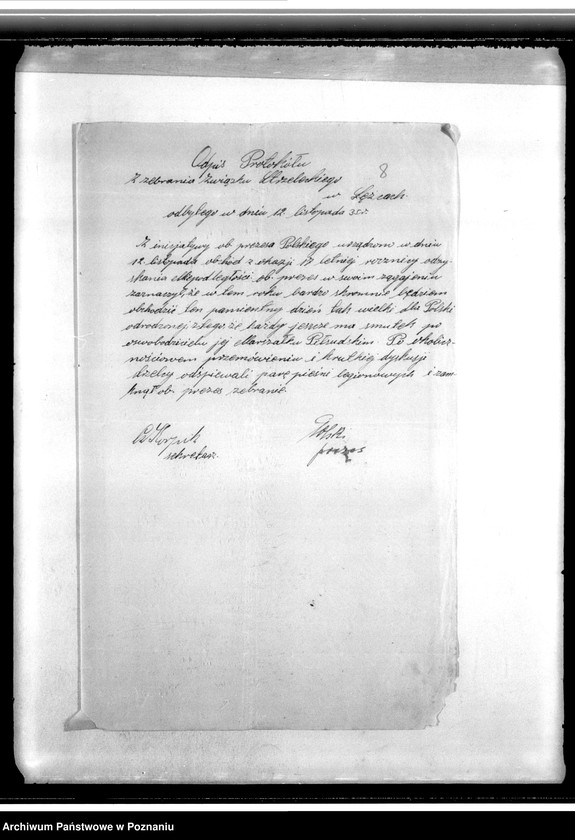 Odpis Protokółu
8
z zebrania Związku Strzeleckiego
w Łęzcach.
odbytego w dniu 12 listopada 35r.
Z inicjatywy ob. prezesa Polskiego urządzono w dniu
12 listopada obchód z okazji 17 letniej rocznicy odzy-
skania Niepodległości ob. prezes w swoim zagajeniu
zaznaczył, że w tem roku bardzo skromnie będziem
obchodzić ten pamientny dzień tak wielki dla Polski
odrodzonej, z tego że każdy jeszcze ma smutek po
oswobodzicielu jej Marszałku Piłsudskim. Po okolicz-
nościowem przemówieniu i krutkiej dyskusji
strzelcy odśpiewali parę pieśni legionowych i zam-
knął ob. prezes zebranie.
sekretarz.
prezes
Archiwum Państwowe w Poznaniu